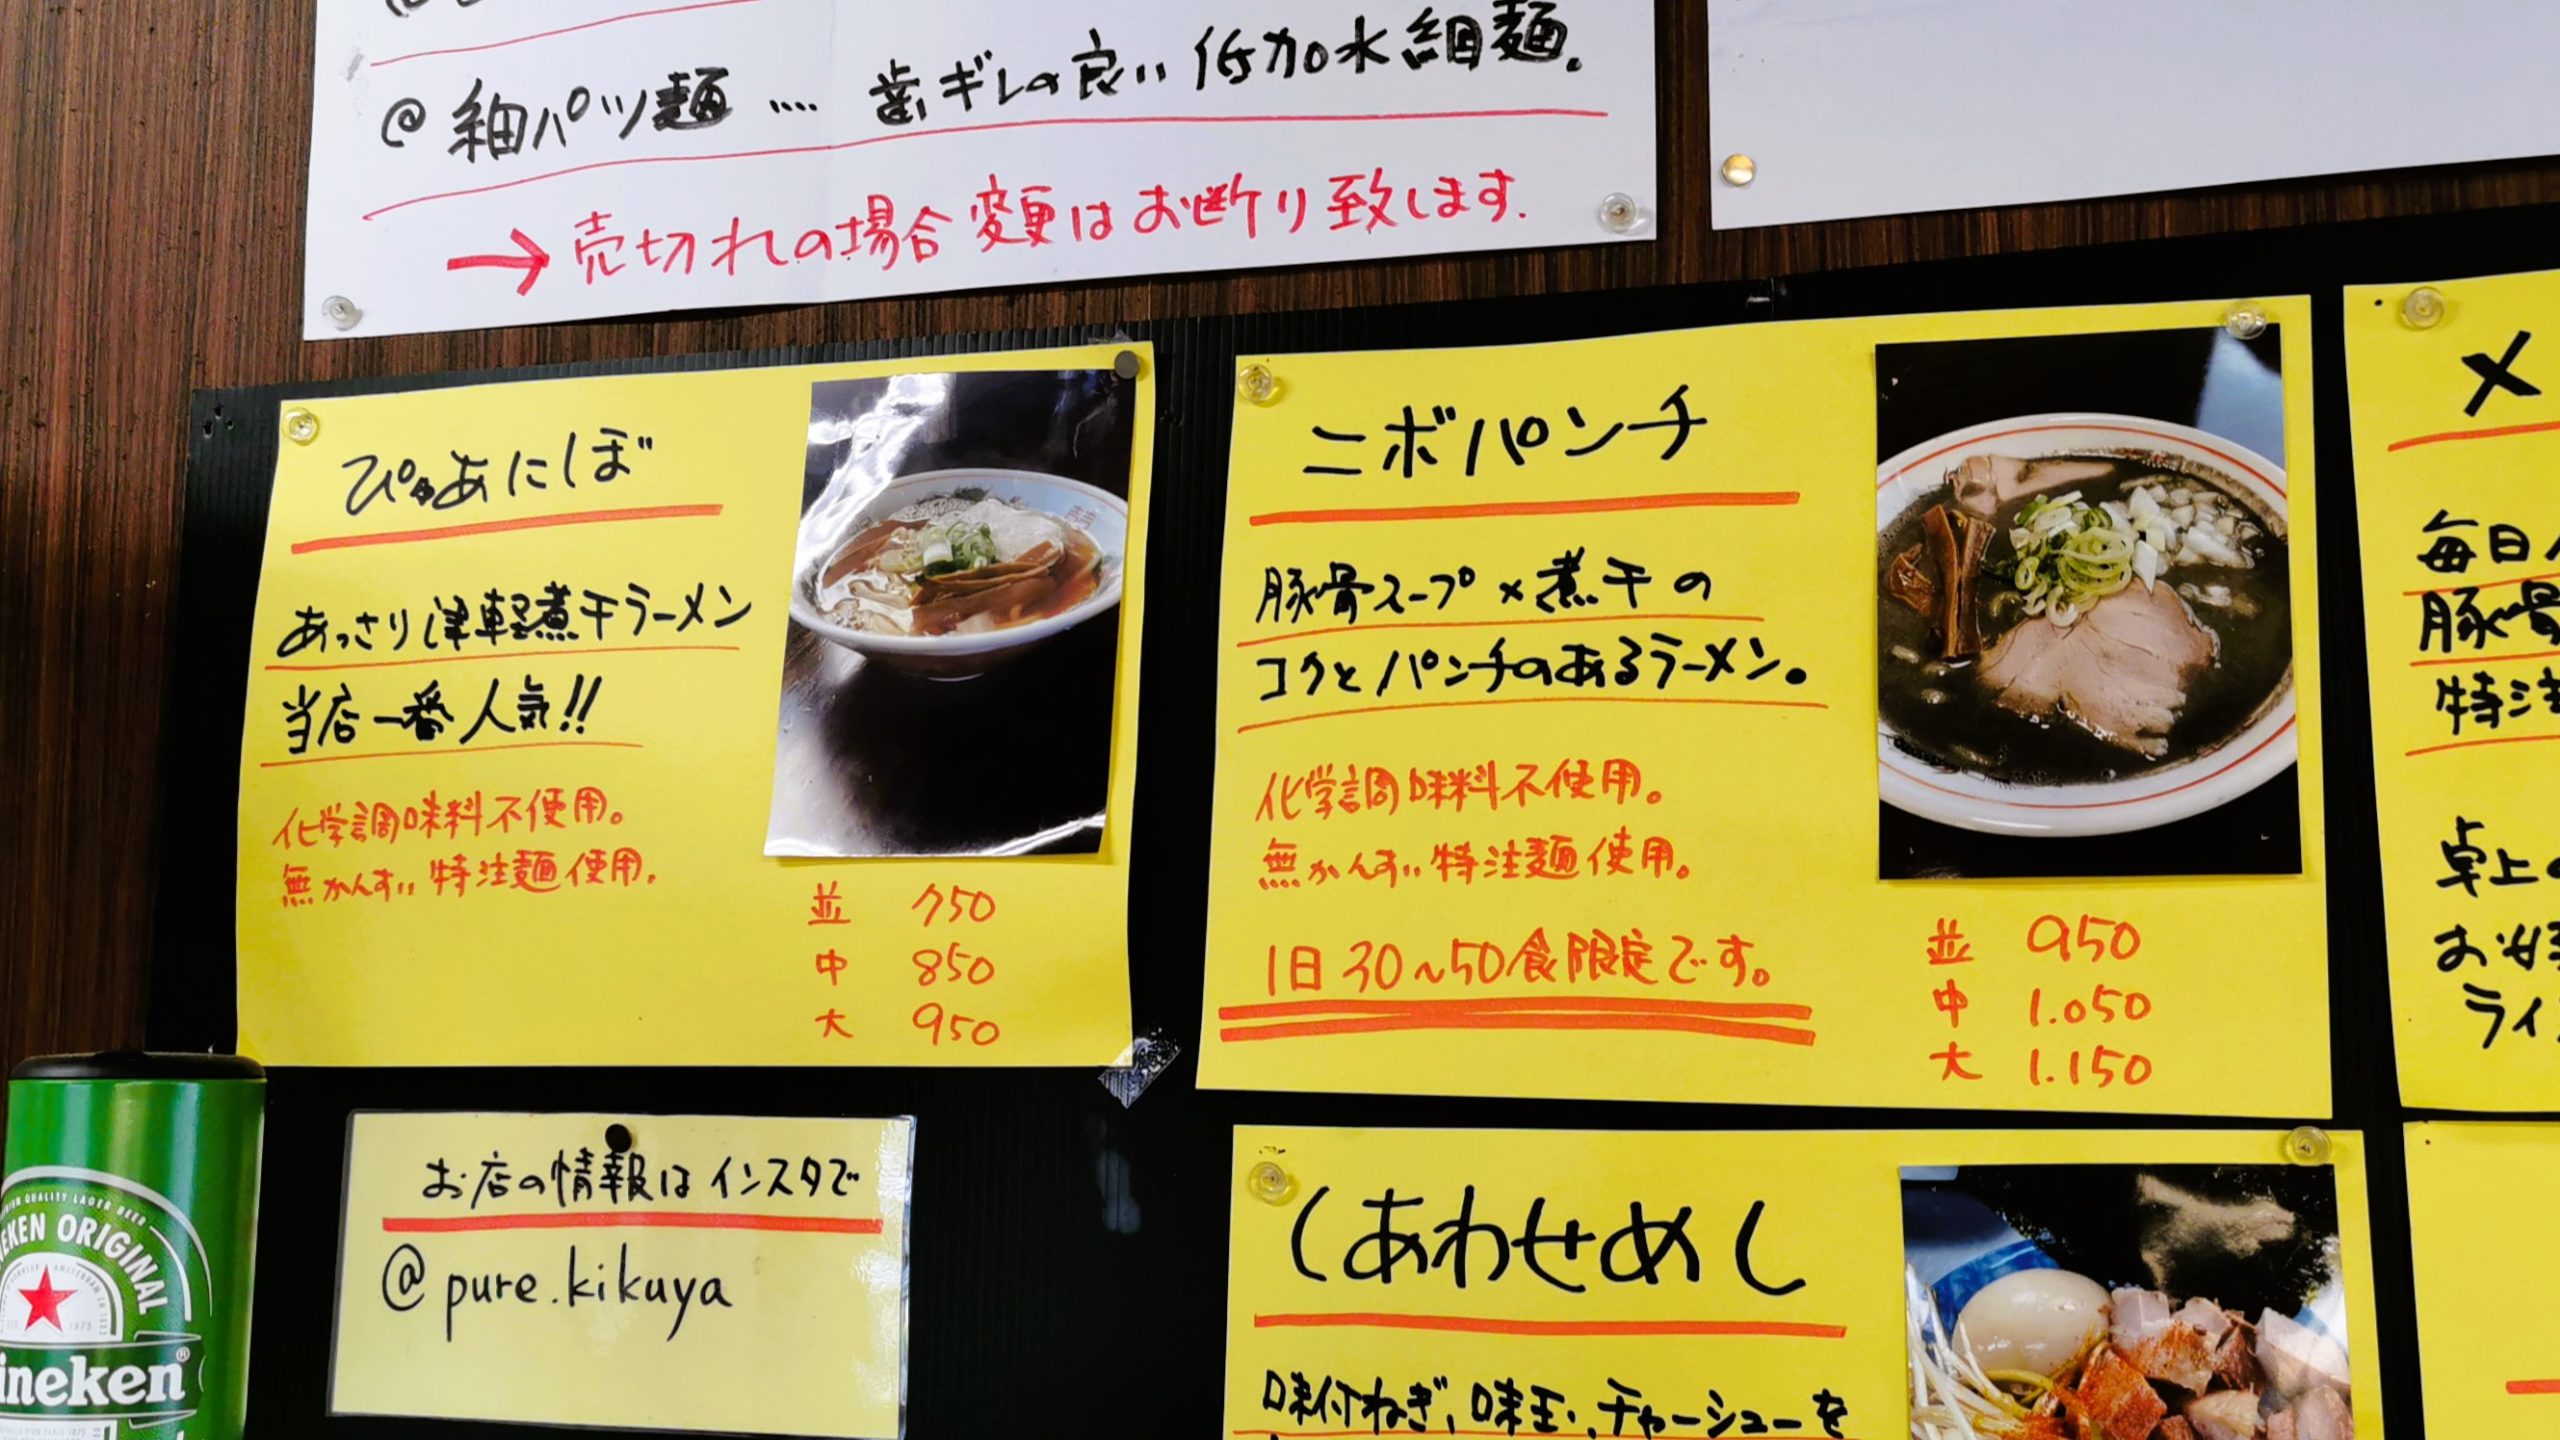 @ 細パツ麺 .... 歯ギレの良い低加水細麺.
→ 売切れの場合変更はお断り致します.
ぴゅあにぼ
あっさり津軽煮干ラーメン
当店一番人気!!
化学調味料不使用。
無かんすい特注麺使用.
並 750
中 850
大 950
ニボパンチ
豚骨スープ×煮干の
コクとパンチのあるラーメン。
化学調味料不使用。
無かんすい特注麺使用.
1日30~50食限定です。
並 950
中 1.050
大 1.150
お店の情報はインスタで
@pure.kikuya
しあわせめし
味付ねぎ、味玉、チャーシューを
メ
毎日
豚骨
特注
卓上
お好
ライ
QUALITY LAGER BEER
EKEN ORIGINAL
ineken®